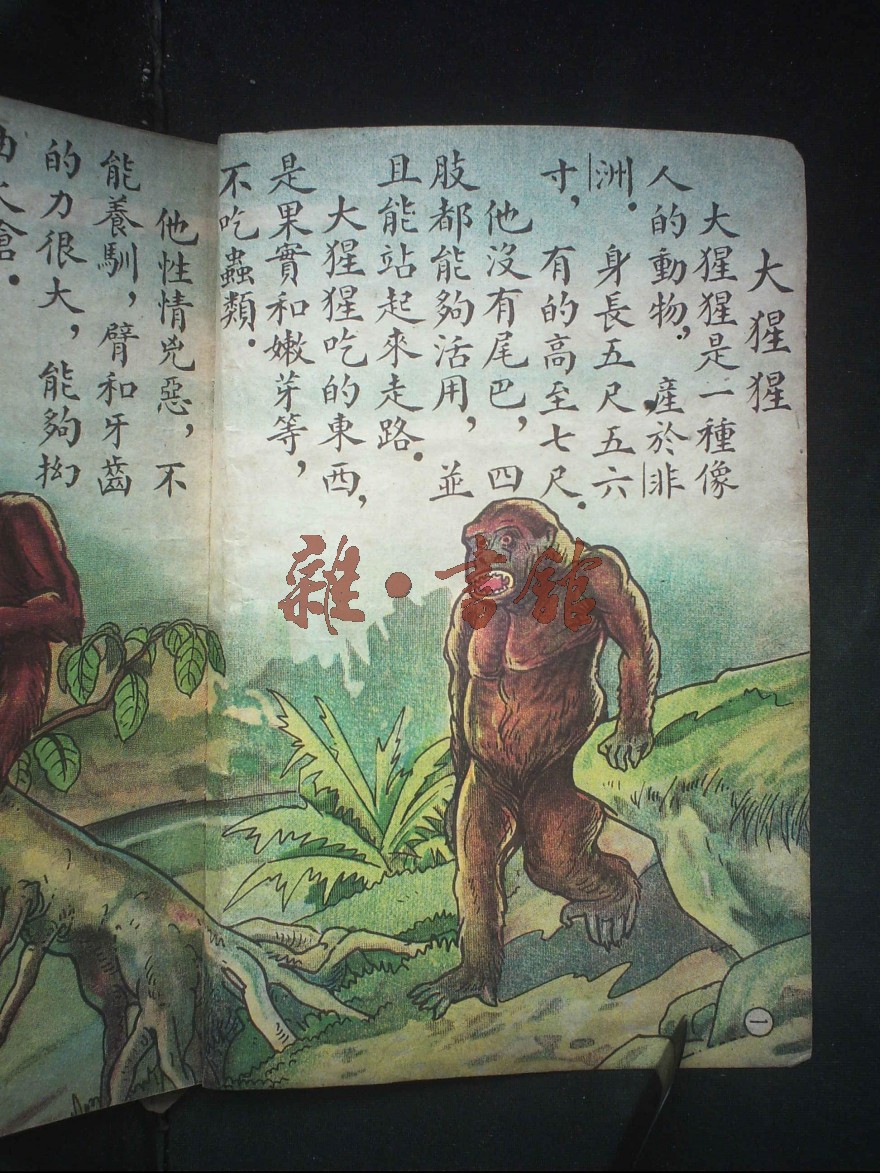 大猩猩
大猩猩是一種像
人的動物,產於非
洲.身長五尺五六
寸,有的高至七尺.
他沒有尾巴,四
肢都能夠活用,並
且能站起來走路.
大猩猩吃的東西,
是果實和嫩芽等,
不吃蟲類.
他性情兇惡,不
能養馴,臂和牙齒
的力很大,能夠拗
雜·書館
一